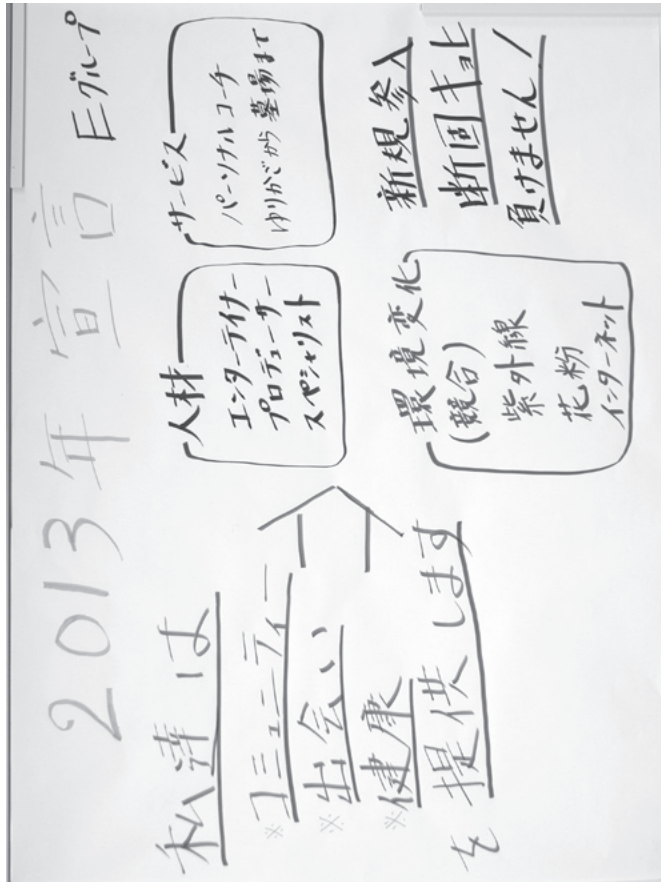 2013年 宣言 Eグループ
私達は
※コミュニティー
※出会い
※健康
を提供します
人材
エンターテイナー
プロデューサー
スペシャリスト
サービス
パーソナルコーチ
ゆりかごから墓場まで
環境変化
(競合)
紫外線
花粉
インターネット
新規参入
断固キョヒ
負けません!